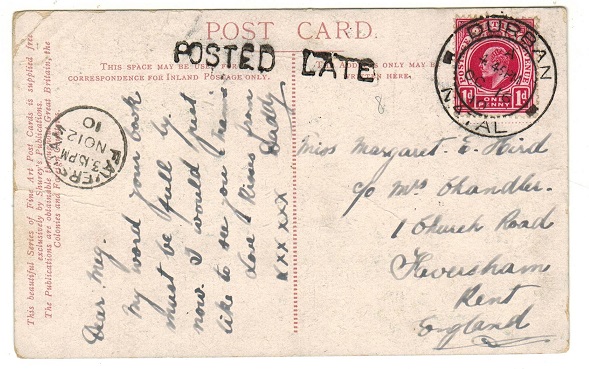 POST CARD.
THIS SPACE MAY BE USED FOR
CORRESPONDENCE FOR INLAND POSTAGE ONLY.
THE ADDRESS ONLY MAY BE
WRITTEN HERE.
POSTED LATE
DURBAN
NATAL
POSTAGE REVENUE
1d ONE PENNY 1d
8
FAVERSHAM
3.15PM
NO 12
10
This beautiful Series of Fine Art Post Cards is supplied free
exclusively by Shurey's Publications.
The Publications are obtainable throughout Great Britain, the
Colonies and Foreign
Dear Meg.
My word your book
must be full by
now. I would just
like to see you
Love & Kisses from
Daddy
xxx xxx
Miss Margaret. E. Hird
c/o Mrs Chandler.
1 Church Road
Faversham
Kent
England